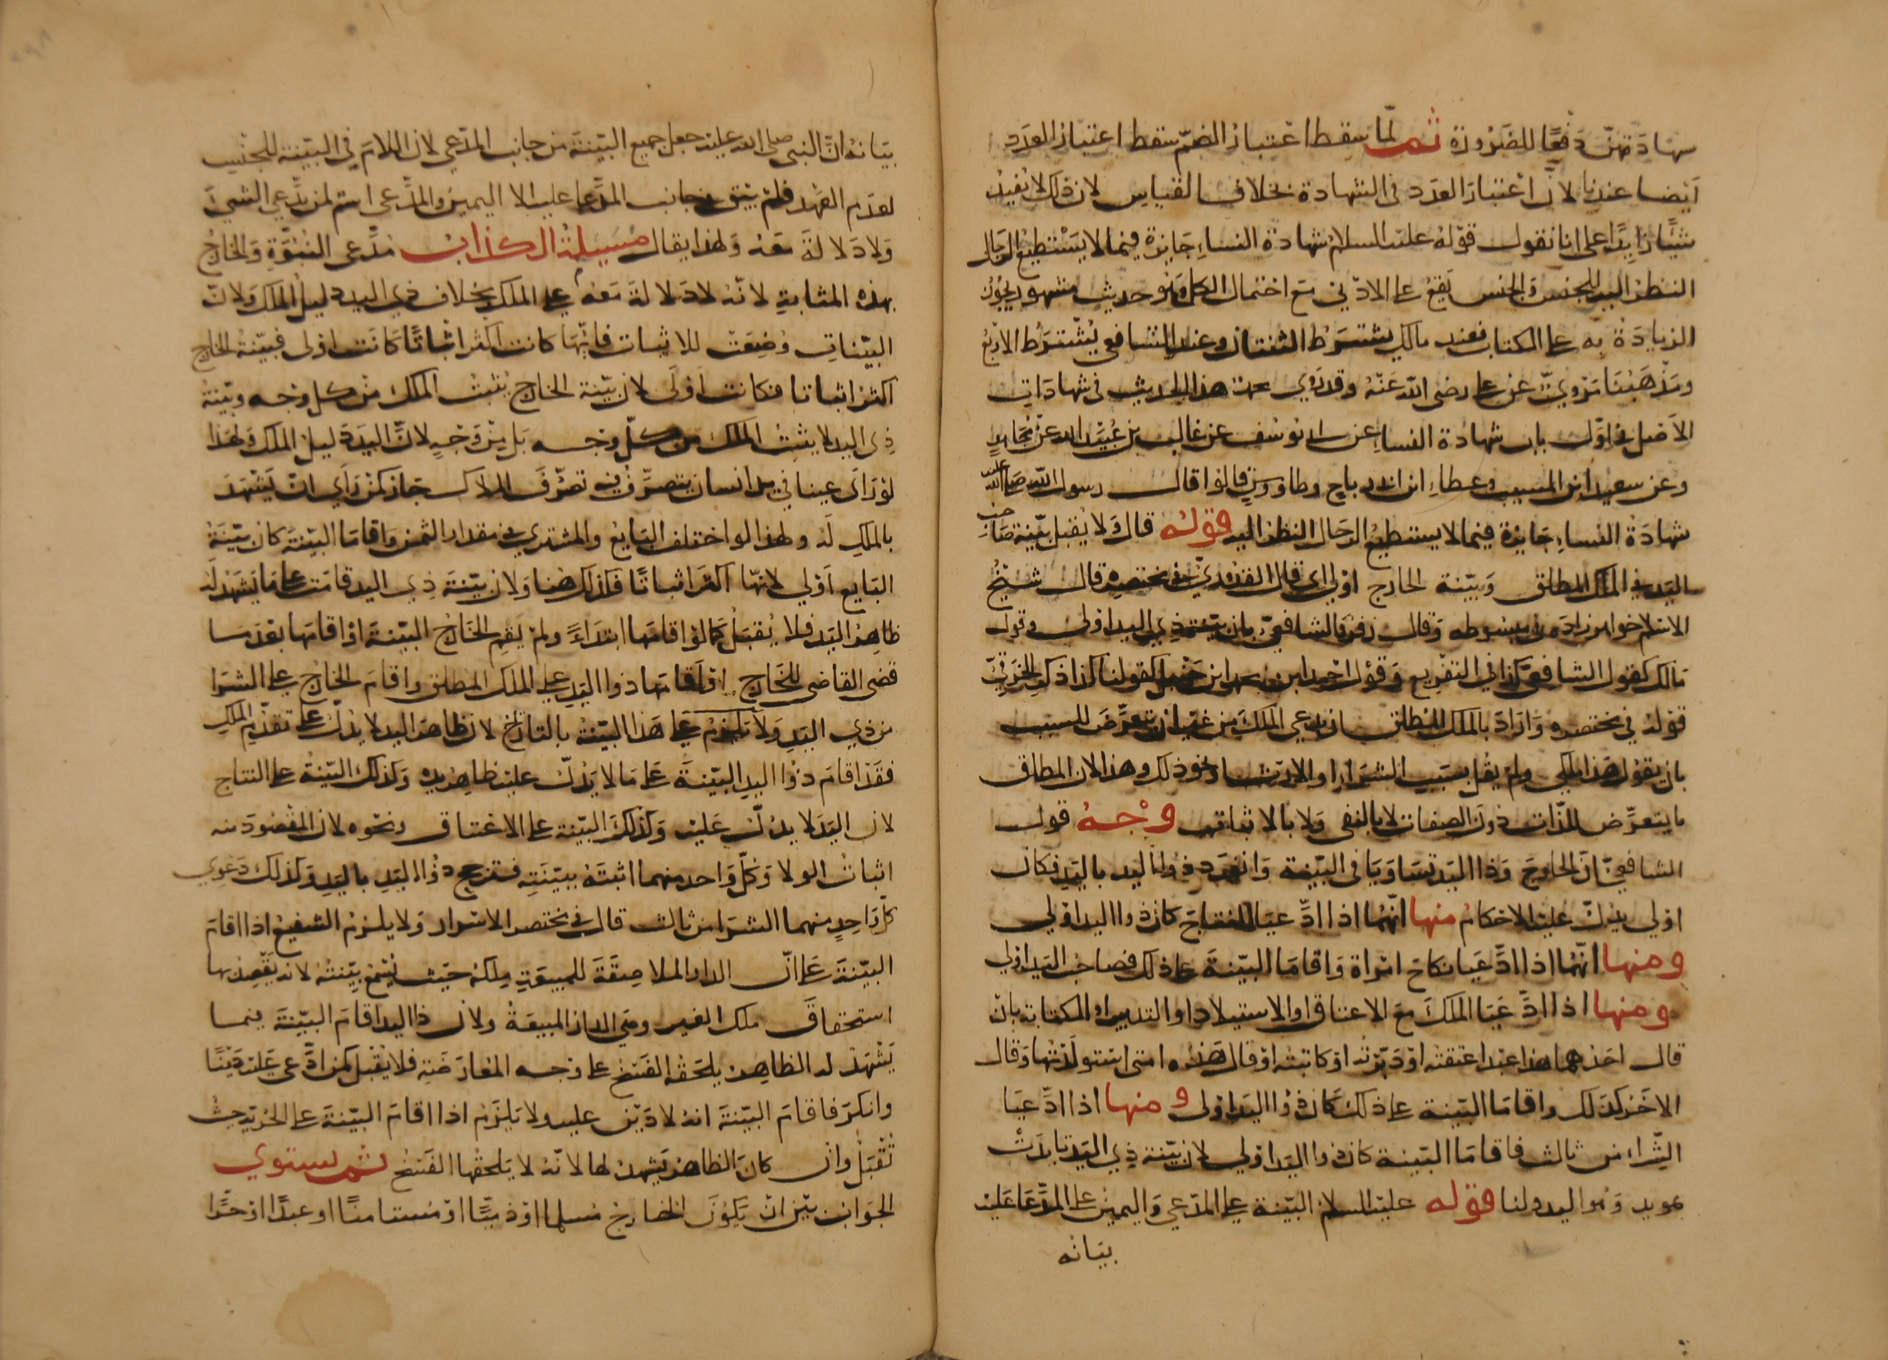 شهادتهن دفعًا للضرورة ثم لمّا سقط اعتبار الضمّ سقط اعتبار العدد
أيضا عندنا لانّ اعتبار العدد في الشهادة بخلاف القياس لان ذلك لا يفيد
شيئًا زايدًا على انا نقول قوله عليه السلام شهادة النساء جايزة فيما لا يستطيع الرجال
النظر اليه للجنس والجنس يقع على الادني مع احتمال الكل وهو حديث مشهور يجوز
الزيادة به على الكتاب فعند مالك يشترط الثنتان وعند الشافعي يشترط الاربع
ومذهبنا مروي عن على رضى الله عنه وقد روي محمد هذا الحديث في شهادات
الأصل في اوّل باب شهادة النساء عن ابى يوسف عن غالب بن عبيد الله عن مجاهد
وعن سعيد ابن المسيب وعطاء ابن ابى رباح وطاووس قالوا قال رسول الله صلى الله عليه
شهادة النساء جايزة فيما لا يستطيع الرجال النظر اليه قوله قال ولا يقبل بينة صاحب
اليد في الملك المطلق وبينة الخارج اولى اي قال القدوري في مختصره قال شيخ
الاسلام خواهر زاده في مبسوطه وقال زفر والشافعيّ بان بينة ذي اليد اولى وقول
مالك كقول الشافعي كذا في التفريع وقول احمد ابن حنبل كقولنا كذا ذكر الخرقيّ
قوله في مختصره واراد بالملك المطلق ان يدعي الملك من غير ان يتعرض للسبب
بان يقول هذا ملكي ولم يقل بسبب الشرا او الارث او نحو ذلك وهذا لان المطلق
ما يتعرّض للذات دون الصفات لا بالنفي ولا بالاثبات وجه قول
الشافعيّ انّ الخارج وذا اليد تساويا في البينة وانفرد ذو اليد باليد فكان
اولى يدلّ عليه الاحكام منها انّهما اذا ادّعيا النتاج كان ذوا اليد اولى
ومنها انهما اذا ادّعيا نكاح امراة واقاما البينة على ذلك فصاحب اليد اولى
ومنها اذا ادّعيا الملك مع الاعتاق او الاستيلاد او التدبير او المكاتبة بان
قال احدهما هذا عبدى اعتقته او دبّرته او كاتبته او قال هذه امتى استولدتها وقال
الاخر كذلك واقاما البينة على ذلك كان ذوا اليد اولى ومنها اذا ادّعيا
الشراء من ثالث فاقاما البينة كان ذوا اليد اولى لان بينة ذي اليد تايدت
بمويد وهو اليد ولنا قوله عليه السلام البينة على المدّعي واليمين على المدّعا عليه
بيانه
بيانه انّ النبي صلى الله عليه جعل جميع البينة من جانب المدّعي لان اللام في البينة للجنس
لعدم العهد فلم يبق من جانب المدّعا عليه الا اليمين والمدّعى اسم لمن يدّعي الشئ
ولا دلالة معه ولهذا يقال مسيلمة الكذاب مدّعى النبوّة والخارج
بهذه المثابة لانّه لا دلالة معه على الملك بخلاف ذى اليد دليل الملك ولانّ
البيّنات وضعت للاثبات فايّها كانت اكثر اثباتًا كانت اولى فبيّنة الخارج
اكثر اثباتا فكانت اولى لان بينة الخارج يثبت الملك من كل وجه وبينة
ذي اليد لا يثبت الملك من كلّ وجه بل من وجهٍ لانّ اليد دليل الملك ولهذا
لو راى عينا في يد انسان يتصرّف فيه تصرّف الملاك جاز لمن راى ان يشهد
بالملك له ولهذا لو اختلف البايع والمشتري في مقدار الثمن واقاما البينة كان بينة
البايع اولى لانها اكثر اثباتًا فكذلك هنا ولان بينة ذي اليد قامت على ما يشهد له
ظاهر اليد فلا يقبل كما لو اقامها ابتداءً ولم يقم الخارج البينة او اقامها بعد ما
قضى القاضى للخارج او اقامها ذوا اليد على الملك المطلق واقام الخارج على الشرا
من ذي اليد ولا يلزم على هذا البينة بالتاريخ لان ظاهر اليد لا يدلّ على تقدّم الملك
فقد اقام ذوا اليد البينة على ما لا يدلّ عليه ظاهر يده وكذلك البينة على النتاج
لان اليد لا يدلّ عليه وكذلك البينة على الاعتاق ونحوه لان المقصود منه
اثبات الولا وكلّ واحد منهما اثبته ببينته فترجح ذوا اليد باليد وكذلك دعوي
كلّ واحدٍ منهما الشرا من ثالث قال في مختصر الاسرار ولا يلزم الشفيع اذا اقام
البينة على انّ الدار الملاصقة للمبيعة ملكه حيث يسمع بينته لانه يقصد بها
استحقاق ملك الغير وهي الدار المبيعة ولان ذا اليد اقام البينة فيما
يشهد له الظاهر يلحقه الفسخ على وجه المعارضة فلا يقبل كمن ادّعى عليه دينًا
وانكر فاقام البينة انه لا دين عليه ولا يلزم اذا اقام البينة على الحرية حيث
تقبل وان كان الظاهر يشهد لها لانّه لا يلحقها الفسخ ثم يستوي
الجواب بين ان يكون الخارج مسلما او ذميّا او مستامنًا او عبدًا او حرًّا